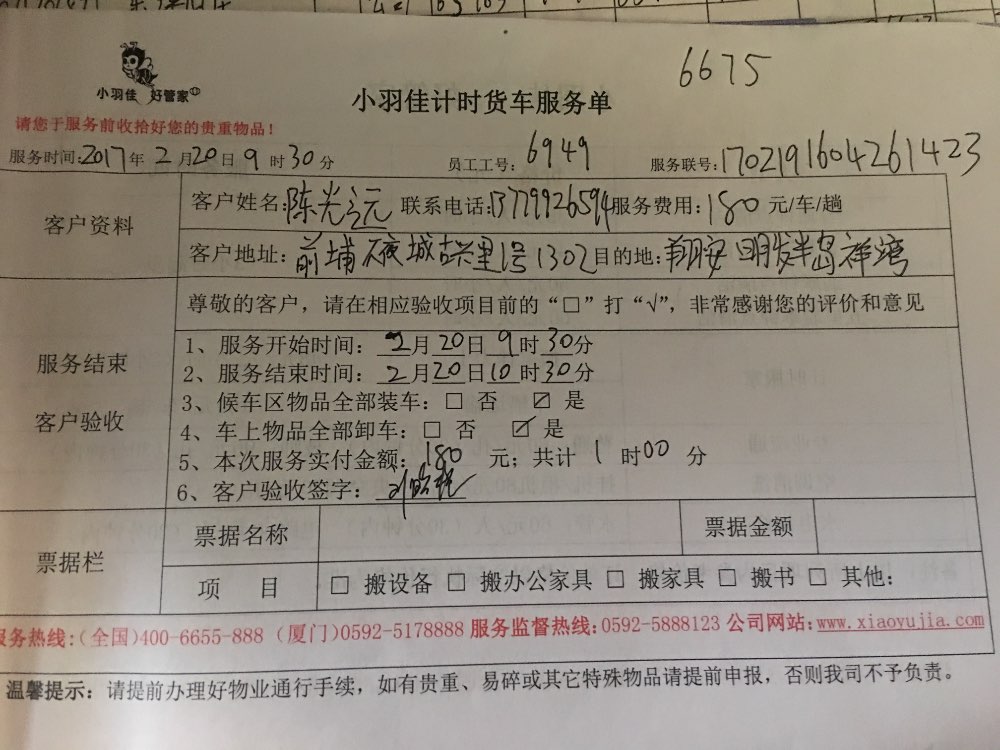 6675
小羽佳 好管家
小羽佳计时货车服务单
请您于服务前收拾好您的贵重物品！
服务时间:2017年2月20日9时30分 员工工号:6949 服务联号:1702191604261423
客户资料
客户姓名:陈光远 联系电话:13779926594服务费用:180元/车/趟
客户地址:前埔 城古兴里1号1302目的地:翔安 明发半岛祥湾
尊敬的客户，请在相应验收项目前的“□”打“√”，非常感谢您的评价和意见
服务结束
客户验收
1、服务开始时间: 2月20日9时30分
2、服务结束时间: 2月20日10时30分
3、候车区物品全部装车: □ 否 ☑ 是
4、车上物品全部卸车: □ 否 ☑ 是
5、本次服务实付金额: 180 元; 共计 1 时00分
6、客户验收签字:
票据栏
票据名称 票据金额
项 目 □ 搬设备 □ 搬办公家具 □ 搬家具 □ 搬书 □ 其他:
服务热线:(全国)400-6655-888 (厦门)0592-5178888 服务监督热线:0592-5888123 公司网站:www.xiaoyujia.com
温馨提示: 请提前办理好物业通行手续，如有贵重、易碎或其它特殊物品请提前申报，否则我司不予负责。